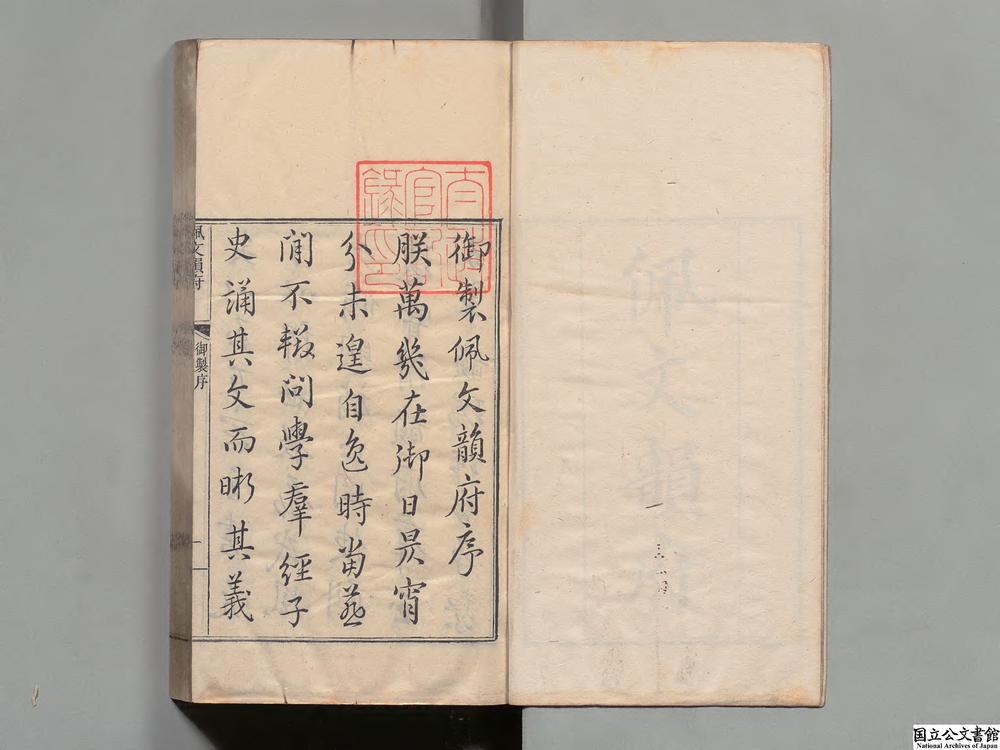 佩文韻府
太政官記錄印
御製佩文韻府序
朕萬幾在御日昃宵
分未遑自逸時當燕
閒不輟問學羣經子
史誦其文而晰其義
佩文韻府
御製序
国立公文書館
National Archives of Japan